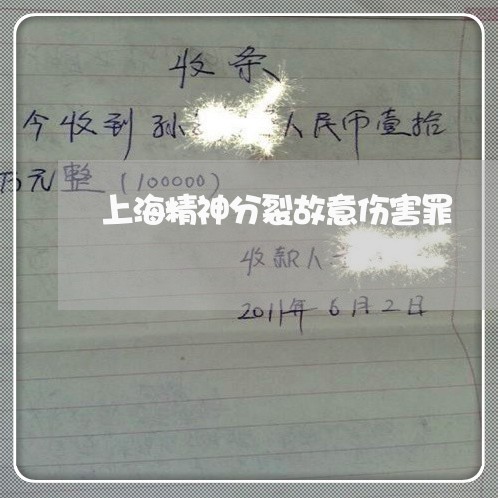 收条
今收到孙人民币壹拾
万元整(100000)
上海精神分裂故意伤害罪
收款人
2011年6月2日